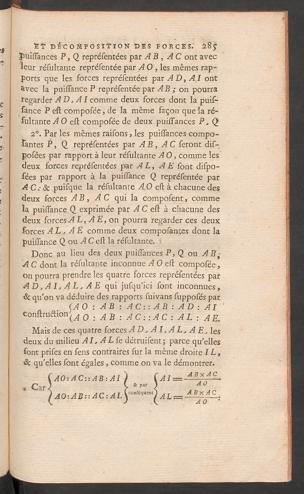 ET DÉCOMPOSITION DES FORCES. 285
puissances P, Q représentées par AB, AC ont avec
leur résultante représentée par AO, les mêmes rap-
ports que les forces représentées par AD, AI ont
avec la puissance P représentée par AB; on pourra
regarder AD, AI comme deux forces dont la puis-
sance P est composée, de la même façon que la ré-
sultante AO est composée de deux puissances P, Q
2°. Par les mêmes raisons, les puissances compo-
santes P, Q représentées par AB, AC seront dis-
posées par rapport à leur résultante AO, comme les
deux forces représentées par AL, AE sont dispo-
sées par rapport à la puissance Q représentée par
AC: & puisque la résultante AO est à chacune des
deux forces AB, AC qui la composent, comme
la puissance Q exprimée par AC est à chacune des
deux forces AL, AE, on pourra regarder ces deux
forces AL, AE comme deux composantes dont la
puissance Q ou AC est la résultante.
Donc au lieu des deux puissances P, Q ou AB,
AC dont la résultante inconnue AO est composée,
on pourra prendre les quatre forces représentées par
AD, AI, AL, AE qui jusqu'ici sont inconnues,
& qu'on va déduire des rapports suivans supposés par
construction { AO : AB : AC :: AB : AD : AI
{ AO : AB : AC :: AC : AL : AE.
Mais de ces quatre forces AD, AI, AL, AE, les
deux du milieu AI, AL se détruisent; parce qu'elles
sont prises en sens contraires sur la même droite IL,
& qu'elles sont égales, comme on va le démontrer.
* Car { AO:AC::AB:AI } & par { AI = AB×AC / AO
{ AO:AB::AC:AL } conséquent { AL = AB×AC / AO ;